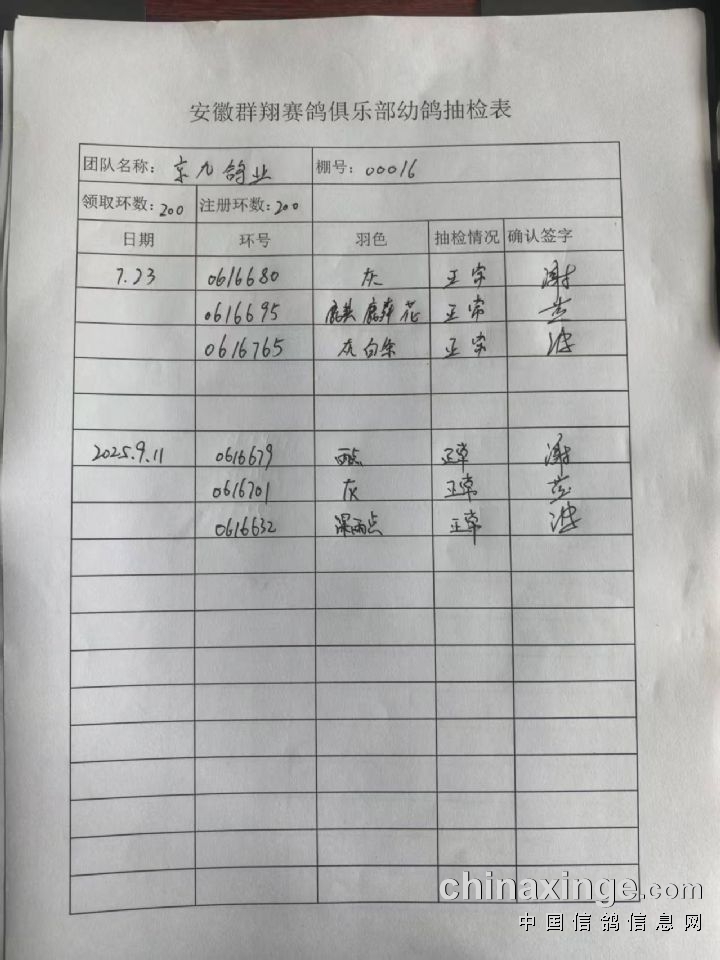 安徽群翔赛鸽俱乐部幼鸽抽检表
团队名称： 京九鸽业 棚号： 00016
领取环数：200 注册环数：200
日期 环号 羽色 抽检情况 确认签字
7.23 0616680 灰 正常 谢
0616695 麒麟花 正常
0616765 灰白条 正常 波
2025.9.11 0616679 雨点 正常 谢
0616701 灰 正常
0616632 深雨点 正常 波
chinaxinge.com
中国信鸽信息网